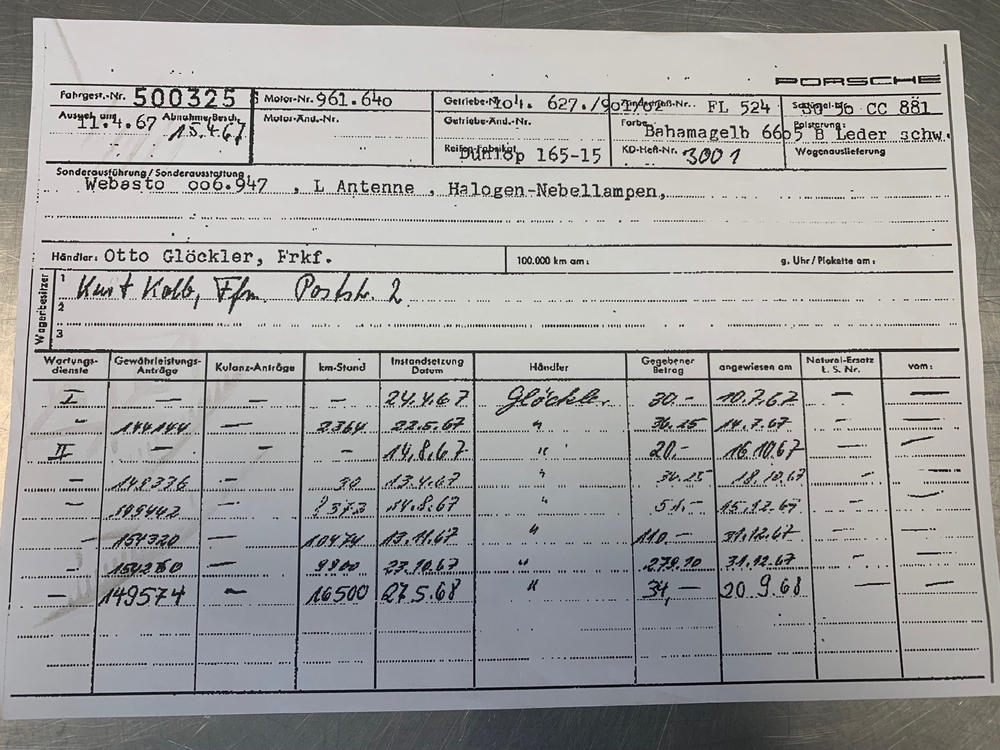 PORSCHE
Fahrgest.-Nr. 500325 S Motor-Nr. 961.640 Getriebe-Nr. 104. 627./902/02 FL 524 CC 881
Ausgel. am 11.4.67 Abnahme/Besch. 13.4.67 Motor-Änd.-Nr. Getriebe-Änd.-Nr. Farbe Bahamagelb 6605 B Polsterung: Leder schw.
Reifen-Fabrikat Dunlop 165-15 KD-Heft-Nr. 3001 Wagenauslieferung
Sonderausführung / Sonderausstattung
Webasto 006.947 , L Antenne , Halogen-Nebellampen,
Händler: Otto Glöckler, Frkf. 100.000 km am: g. Uhr / Plakette am:
Wagenbesitzer
1 Kurt Kolb, Ffm. Poststr. 2
2
3
Wartungs-dienste Gewährleistungs-Anträge Kulanz-Anträge km-Stand Instandsetzung Datum Händler Gegebener Betrag angewiesen am Natural-Ersatz L. S. Nr. vom:
I — — — 24.4.67 Glöckler 30.- 10.7.67 — —
" 144144 — 2364 22.5.67 " 36.25 14.7.67 — —
II — — - 14.8.67 " 20.- 16.10.67 — —
- 148336 - 30 13.4.67 " 18.10.67 - —
- — 14.8.67 " 51.- 15.12.67 - —
- 154320 — 10474 13.11.67 " 110.- 31.12.67 - —
- 154260 — 9800 23.10.67 " 279.10 31.12.67 — —
— 149574 — 16500 27.5.68 " 34,— 20.9.68 — —